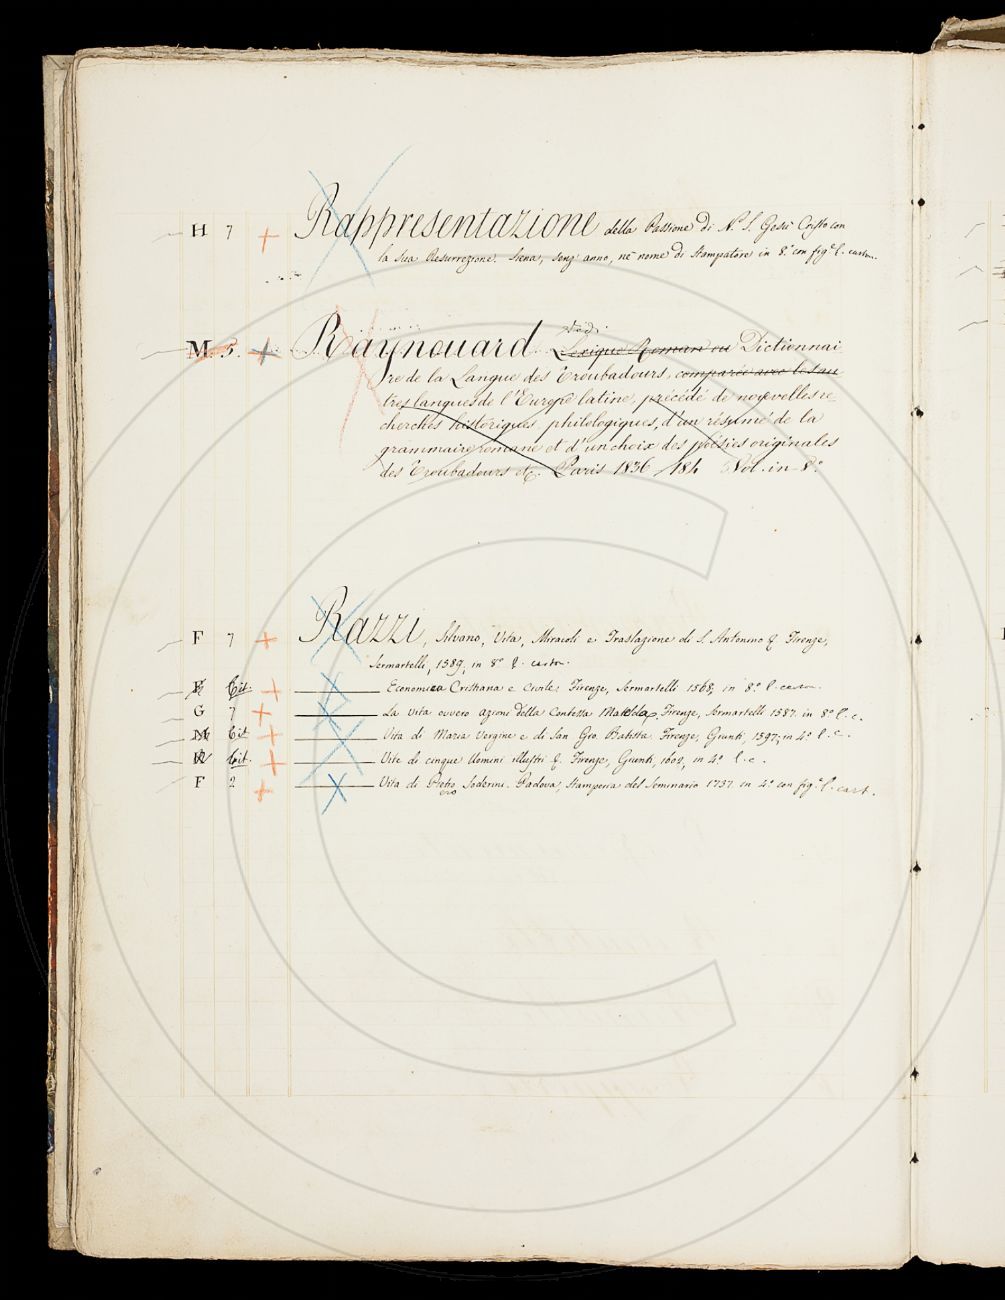 H 7 Rappresentazione della Passione di N. S. Gesù Cristo con
la sua Resurrezione. Siena, senz' anno, nè nome di Stampatore in 8.° con fig.e l. carton.
Vedi
M. 5. Raynouard Lexique Roman ou Dictionnai
re de la Langue des Troubadours, comparée avec les au
tres langues de l'Europe latine, précédé de nouvelles re
cherches historiques, philologiques, d'un résumé de la
grammaire romane et d'un choix des poésies originales
des Troubadours etc. Paris 1836 184 Vol. in-8.°
F 7 Razzi, Silvano, Vita, Miracoli e Traslazione di S. Antonino Firenze,
Sermartelli, 1589, in 8.° l. carton.
Cit. Economica Cristiana e civile, Firenze, Sermartelli 1568, in 8.° l. carton.
G 7 La Vita ovvero azioni della Contessa Matelda, Firenze, Sermartelli 1587. in 8.° l. c.
Cit Vita di Maria Vergine e di San Gio. Batista. Firenze, Giunti, 1597, in 4.° l. c.
Cit. Vite di cinque Uomini illustri Firenze, Giunti, 1602, in 4.° l. c.
F 2 Vita di Pietro Soderini. Padova, Stamperia del Seminario 1737. in 4.° con fig.e l. cart.
ero